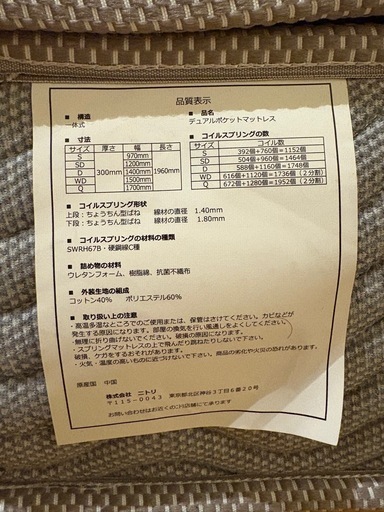 品質表示
■ 構造
一体式
■ 品名
デュアルポケットマットレス
■ 寸法
サイズ 厚さ 幅 長さ
S 300mm 970mm 1960mm
SD 1200mm
D 1400mm
WD 1500mm
Q 1700mm
■ コイルスプリングの数
サイズ コイル数
S 392個+760個=1152個
SD 504個+960個=1464個
D 588個+1160個=1748個
WD 616個+1120個=1736個(2分割)
Q 672個+1280個=1952個(2分割)
■ コイルスプリング形状
上段:ちょうちん型ばね 線材の直径 1.40mm
下段:ちょうちん型ばね 線材の直径 1.80mm
■ コイルスプリングの材料の種類
SWRH67B・硬鋼線C種
■ 詰め物の材料
ウレタンフォーム、樹脂綿、抗菌不織布
■ 外装生地の組成
コットン40% ポリエステル60%
■ 取り扱い上の注意
・高温多湿なところでのご使用または、保管はさけてください。カビなどが
発生する原因になります。部屋の換気を行い風通しをよくしてください。
・無理に折り曲げないでください。破損の原因になります。
・スプリングマットレスの上で飛んだり跳ねたりしないで下さい。
破損、ケガをするおそれがあります。
・火気・温度の高いものに近づけないで下さい。商品の劣化や火災の恐れがあります。
原産国 中国
株式会社 ニトリ
〒115-0043 東京都北区神谷3丁目6番20号
お問い合わせはお近くのニトリ店舗にて承ります。